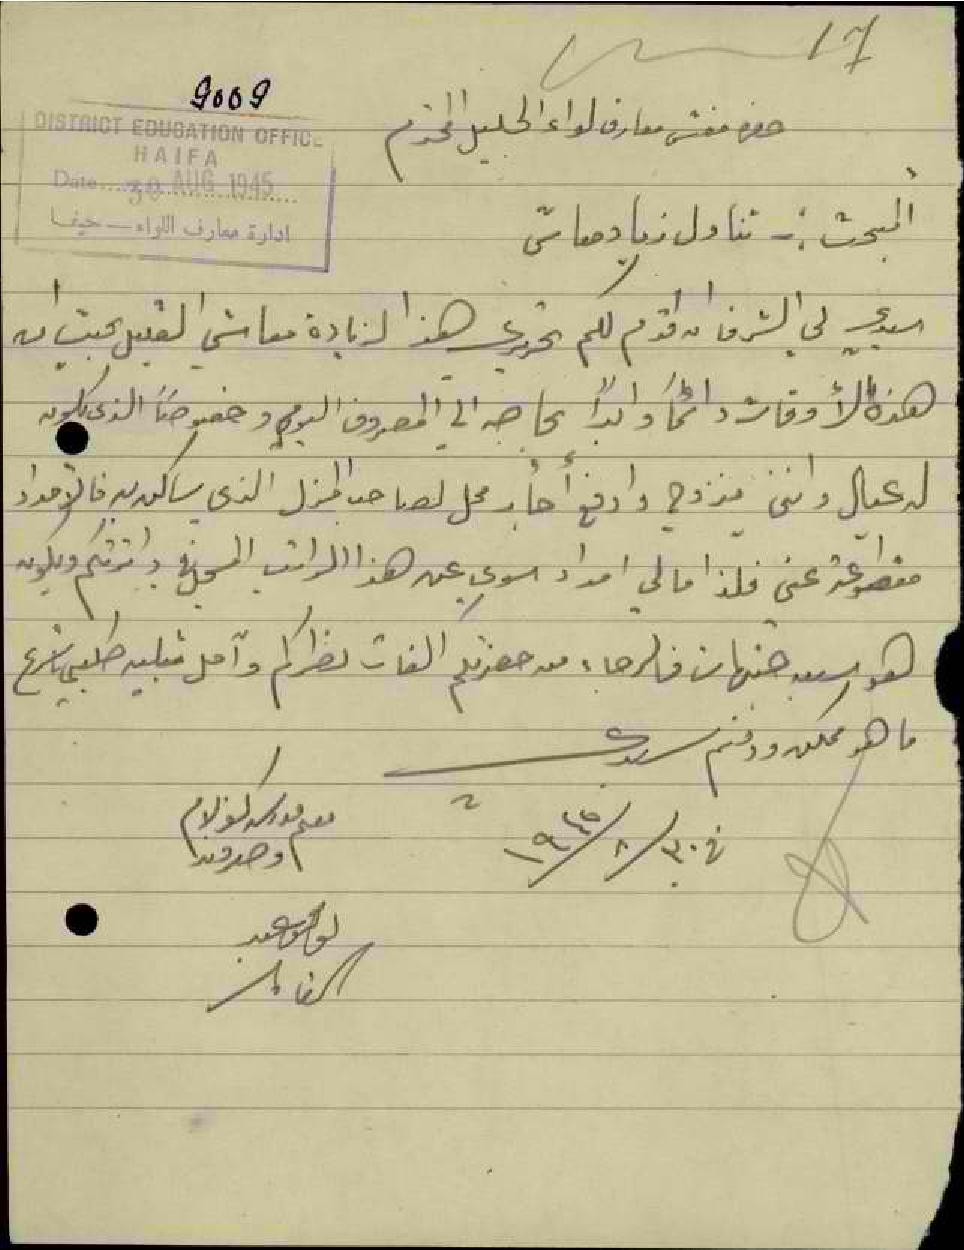 17
9009
DISTRICT EDUCATION OFFICE
HAIFA
Date.... 30 AUG 1945
ادارة معارف اللواء — حيفا
حضرة مفتش معارف لواء الجليل المحترم
البحث :- تناول زيادة معاش
سيدي لي الشرف ان اقدم لكم تحريري هذا لزيادة معاشي القليل بحيث ان
هذه الأوقات دائماً وابداً بحاجه الى المصروف اليومي وخصوصاً الذي يكون
له عيال وانني متزوج وادفع أجار محل لصاحب المنزل الذي ساكن به فالامداد
مقطوعة عني فلذا مالي امداد سوى عن هذا الراتب المسجل في دائرتكم ويكون
هو سبعه جنيهات فالرجاء من حضرتكم الفات نظركم وآمل تلبية طلبي بأسرع
ما هو ممكن ودمتم سيدي
في ٣٠/٨/١٩٤٥
معلم مدرسة